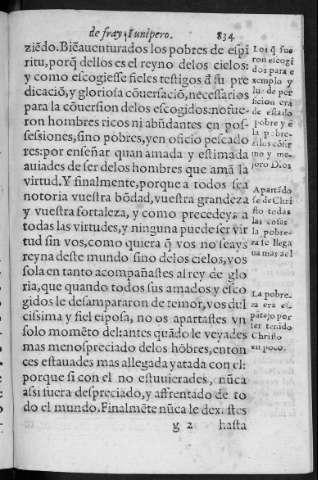 de fray Iunipero. 834
ziẽdo. Biẽauenturados los pobres de espi
ritu, porq̃ dellos es el reyno delos cielos:
y como escogiesse fieles testigos a su pre
dicaciõ, y gloriosa cõuersaciõ, necessarios
para la cõuersion delos escogidos: no fue
ron hombres ricos ni abũdantes en pos-
sessiones, sino pobres, y en oficio pescado
res: por enseñar quan amada y estimada
auiades de ser delos hombres que amã la
virtud. Y finalmente, porque a todos sea
notoria vuestra bõdad, vuestra grandeza
y vuestra fortaleza, y como precedeys a
todas las virtudes, y ninguna puede ser vir
tud sin vos, como quiera q̃ vos no seays
reyna deste mundo sino delos cielos, vos
sola en tanto acompañastes al rey de glo
ria, que quando todos sus amados y esco
gidos le desampararon de temor, vos dul
cissima y fiel esposa, no os apartastes vn
solo momẽto del: antes quãdo le veyades
mas menospreciado delos hõbres, enton
ces estauades mas allegada y atada con el:
porque si con el no estuuierades, nũca
assi fuera despreciado, y affrentado de to
do el mundo. Finalmẽte nũca le dexastes
g 2 hasta
Los q̃ fue
ron escogi
dos para e
xemplo y
luz de per
ficion era
de estado
pobre y e
la pobre-
mo y me-
joro Dios
Apartado
se de Chri
sto todas
las cosas
la pobre-
za se llega
ua mas a el
La pobre-
za era es
petejo por
ser tenido
Christo
en poco.